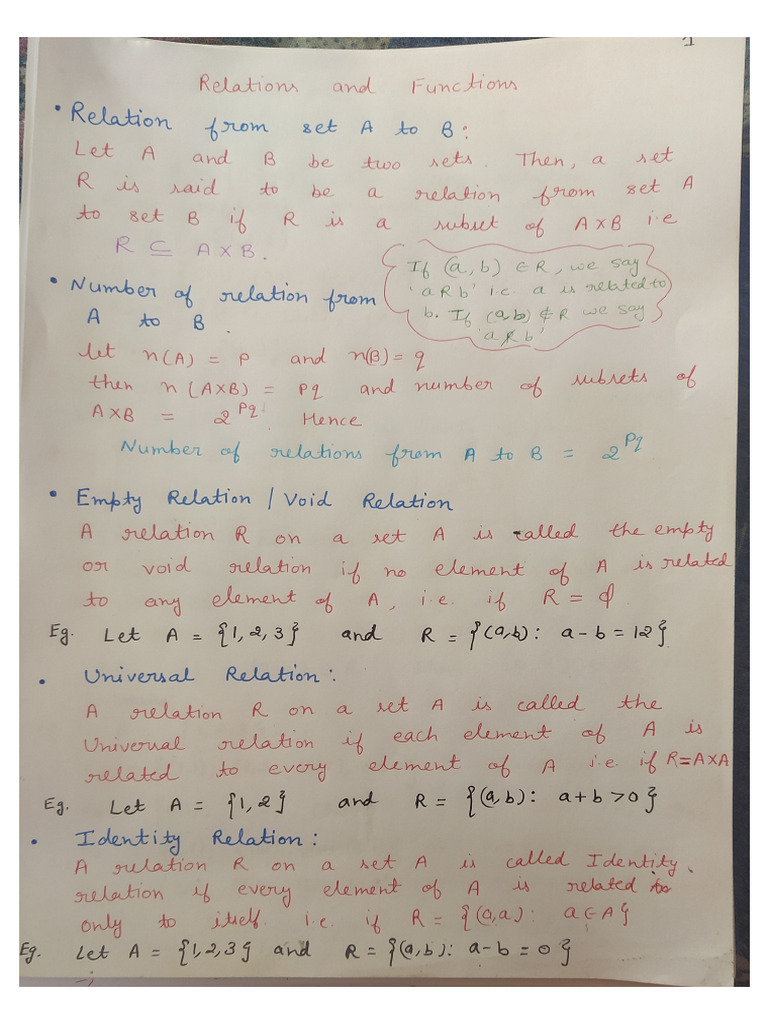 1
Relations and Functions
• Relation from set A to B:
Let A and B be two sets. Then, a set
R is said to be a relation from set A
to set B if R is a subset of A×B i.e
R ⊆ A×B.
If (a,b) ∈ R, we say
'aRb' i.e. a is related to
b. If (a,b) ∉ R we say
'a R̸ b'
• Number of relation from
A to B.
let n(A) = p and n(B) = q
then n(A×B) = pq and number of subsets of
A×B = 2^pq. Hence
Number of relations from A to B = 2^pq
• Empty Relation / Void Relation
A relation R on a set A is called the empty
or void relation if no element of A is related
to any element of A, i.e. if R = ϕ.
Eg. Let A = {1,2,3} and R = {(a,b): a-b=12}
• Universal Relation:
A relation R on a set A is called the
Universal relation if each element of A is
related to every element of A i.e. if R=A×A
Eg. Let A = {1,2} and R = {(a,b): a+b>0}
• Identity Relation:
A relation R on a set A is called Identity
relation if every element of A is related to
only to itself. i.e. if R = {(a,a): a∈A}
Eg. Let A = {1,2,3} and R = {(a,b): a-b=0}